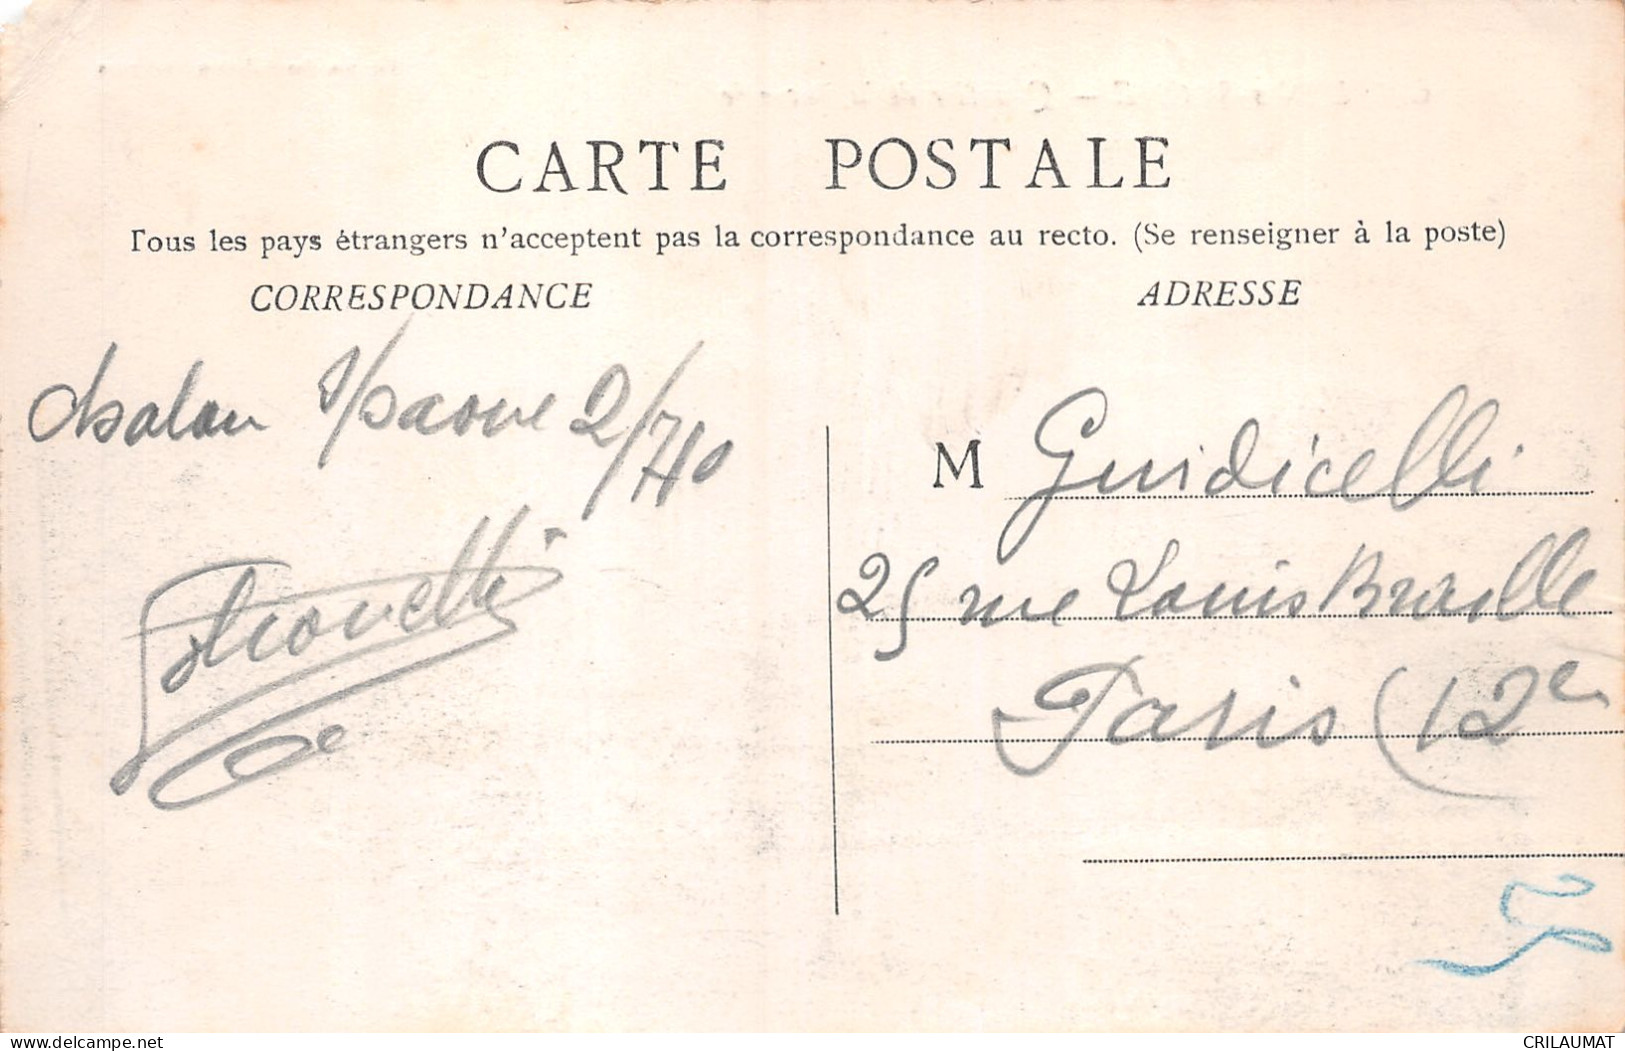 CARTE POSTALE
Tous les pays étrangers n'acceptent pas la correspondance au recto. (Se renseigner à la poste)
CORRESPONDANCE
ADRESSE
Chalon s/saone 2/7/40
M Guidicelli
25 rue Louis Braille
Paris (12e
delcampe.net
CRILAUMAT